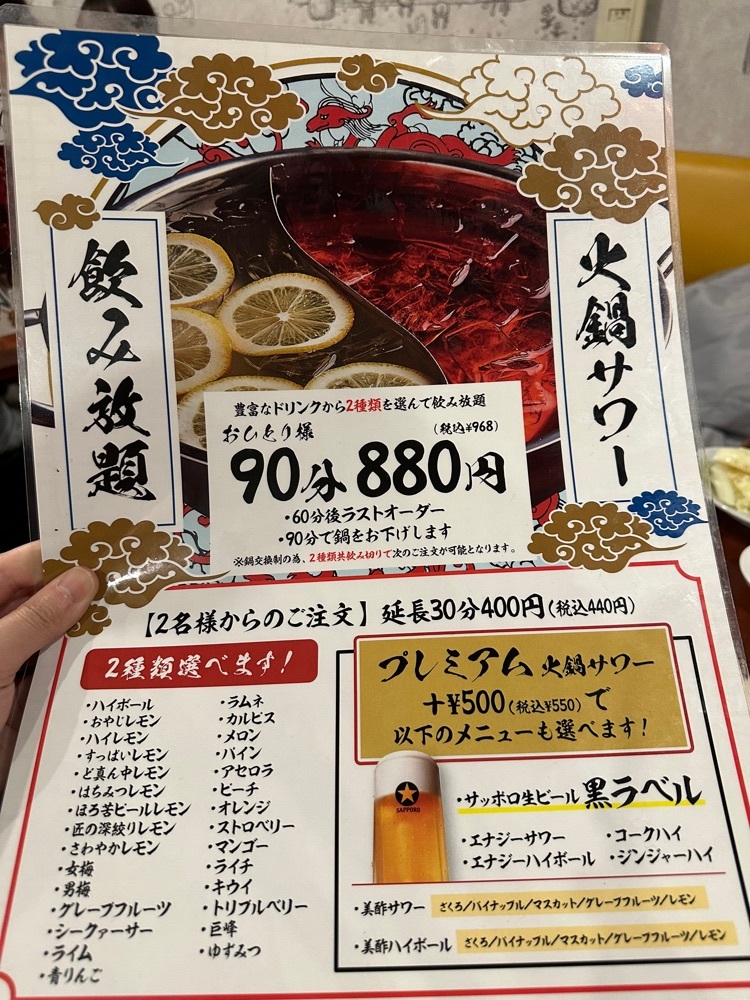 飲み放題
火鍋サワー
豊富なドリンクから2種類を選んで飲み放題
おひとり様 (税込¥968)
90分880円
・60分後ラストオーダー
・90分で鍋をお下げします
※鍋交換制の為、2種類共飲み切りで次のご注文が可能となります。
【2名様からのご注文】延長30分400円(税込440円)
2種類選べます!
・ハイボール
・おやじレモン
・ハイレモン
・すっぱいレモン
・ど真ん中レモン
・はちみつレモン
・ほろ苦ビールレモン
・匠の深絞りレモン
・さわやかレモン
・女梅
・男梅
・グレープフルーツ
・シークァーサー
・ライム
・青りんご
・ラムネ
・カルピス
・メロン
・パイン
・アセロラ
・ピーチ
・オレンジ
・ストロベリー
・マンゴー
・ライチ
・キウイ
・トリプルベリー
・巨峰
・ゆずみつ
プレミアム 火鍋サワー
+¥500(税込¥550)で
以下のメニューも選べます!
SAPPORO
・サッポロ生ビール 黒ラベル
・エナジーサワー ・コークハイ
・エナジーハイボール ・ジンジャーハイ
・美酢サワー ざくろ/パイナップル/マスカット/グレープフルーツ/レモン
・美酢ハイボール ざくろ/パイナップル/マスカット/グレープフルーツ/レモン